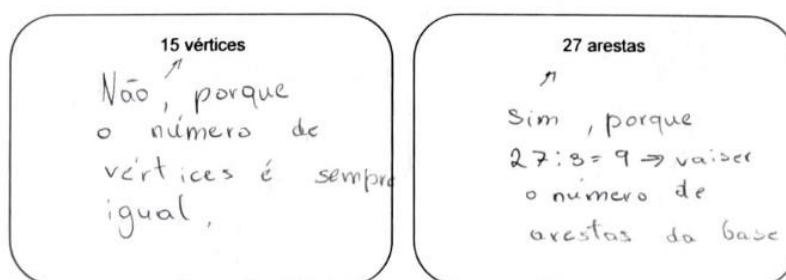 15 vértices
Não, porque
o número de
vértices é sempre
igual,
27 arestas
Sim, porque
27:3=9 → vai ser
o número de
arestas da base